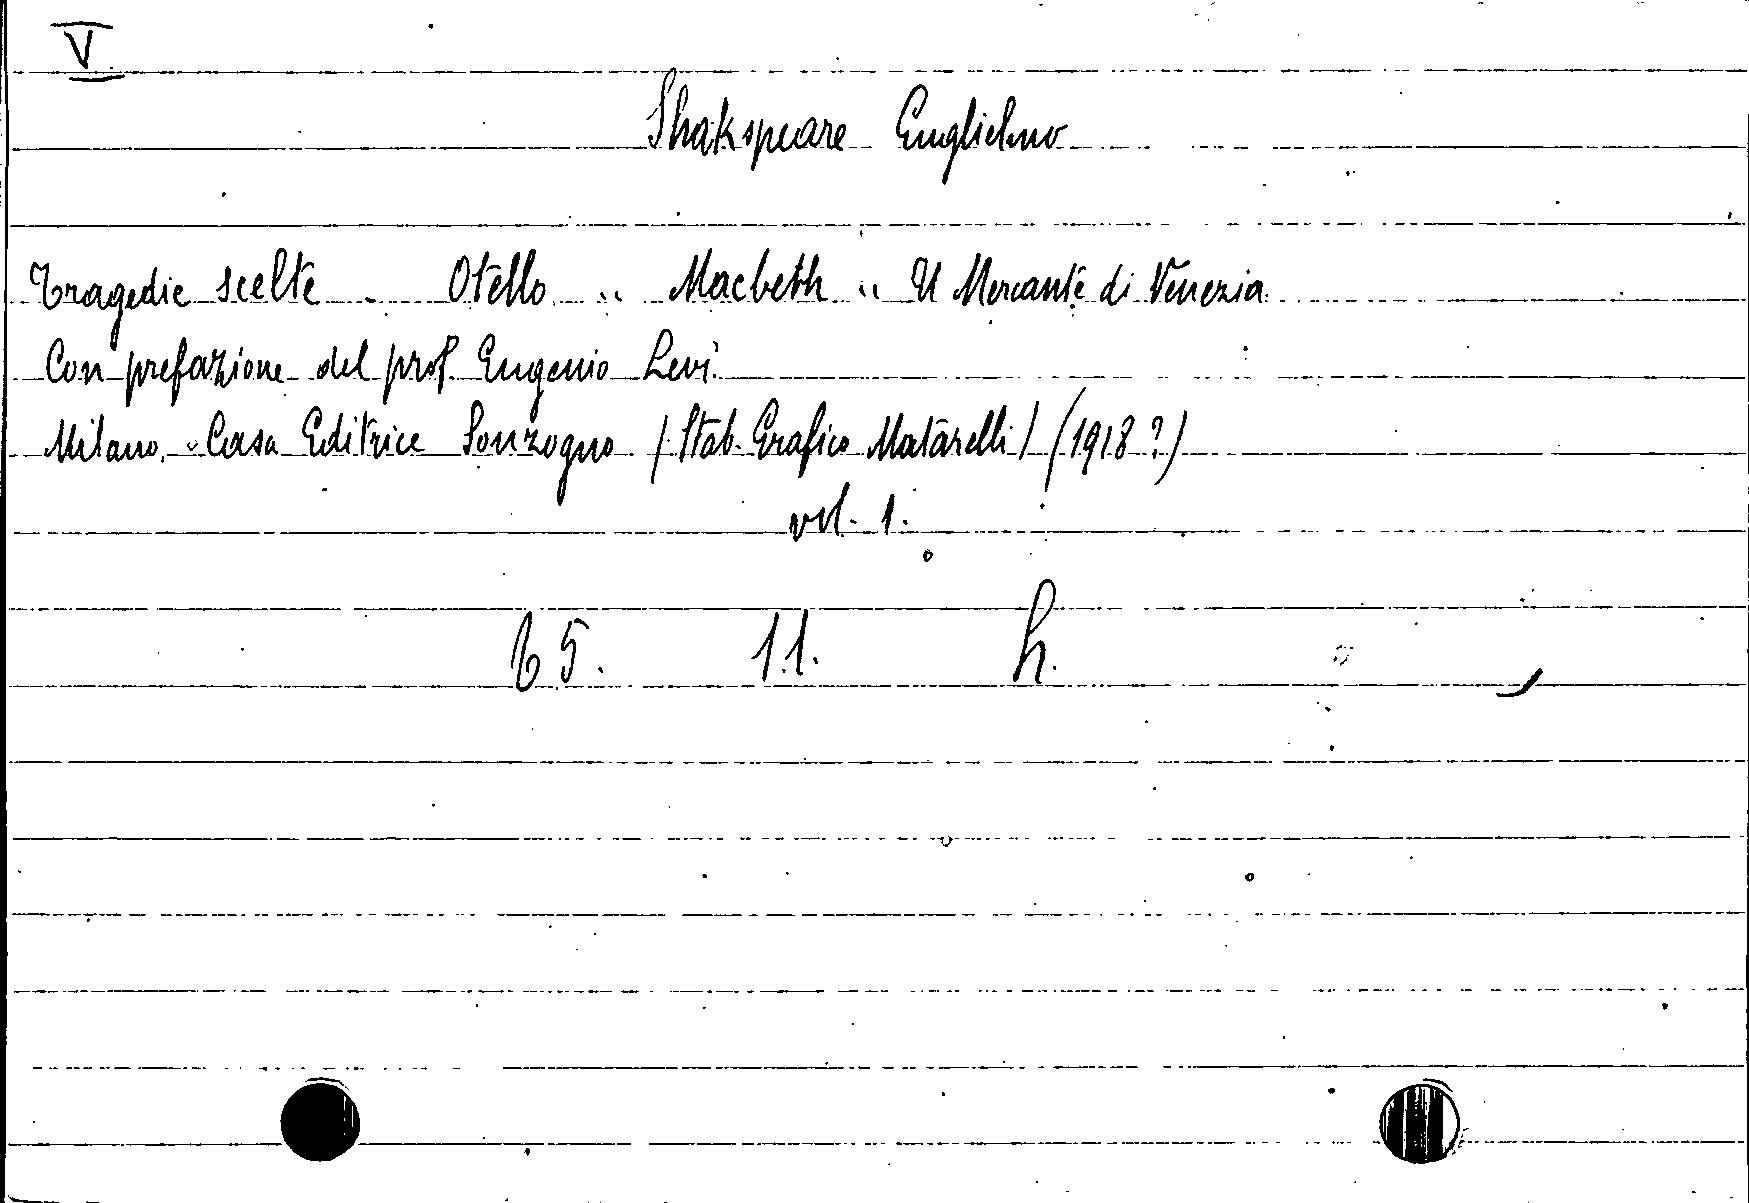 V
Shakspeare Guglielmo
Tragedie scelte - Otello - Macbeth - Il Mercante di Venezia
Con prefazione del prof. Eugenio Levi.
Milano - Casa Editrice Sonzogno (Stab. Grafico Matarelli) (1918?)
vol. 1.
65. 11. h.